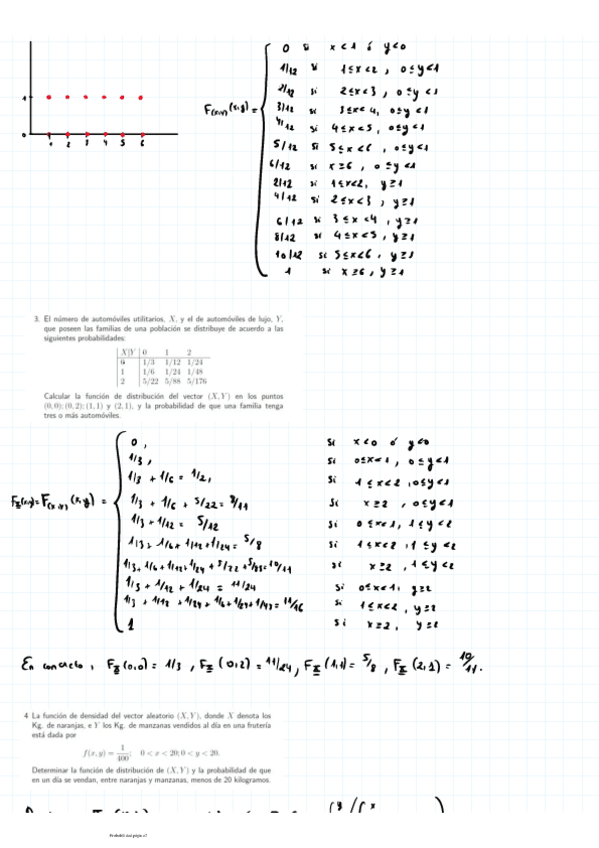 F(x,y) (x,y) =
0 si x<1 ó y<0
1/12 si 1≤x<2, 0≤y<1
2/12 si 2≤x<3, 0≤y<1
3/12 si 3≤x<4, 0≤y<1
4/12 si 4≤x<5, 0≤y<1
5/12 si 5≤x<6, 0≤y<1
6/12 si x≥6, 0≤y<1
2/12 si 1≤x<2, y≥1
4/12 si 2≤x<3, y≥1
6/12 si 3≤x<4, y≥1
8/12 si 4≤x<5, y≥1
10/12 si 5≤x<6, y≥1
1 si x≥6, y≥1
1
0
1 2 3 4 5 6
3. El número de automóviles utilitarios, X, y el de automóviles de lujo, Y,
que poseen las familias de una población se distribuye de acuerdo a las
siguientes probabilidades:
X|Y 0 1 2
0 1/3 1/12 1/24
1 1/6 1/24 1/48
2 5/22 5/88 5/176
Calcular la función de distribución del vector (X, Y) en los puntos
(0, 0); (0, 2); (1, 1) y (2, 1), y la probabilidad de que una familia tenga
tres o más automóviles.
0, si x<0 ó y<0
1/3, si 0≤x<1, 0≤y<1
1/3 + 1/6 = 1/2, si 1≤x<2, 0≤y<1
F(x,y) = F(x,y) (x,y) =
1/3 + 1/6 + 5/22 = 8/11 si x≥2, 0≤y<1
1/3 + 1/12 = 5/12 si 0≤x<1, 1≤y<2
1/3 + 1/6 + 1/12 + 1/24 = 5/8 si 1≤x<2, 1≤y<2
1/3 + 1/6 + 1/12 + 1/24 + 5/22 + 5/88 = 10/11 si x≥2, 1≤y<2
1/3 + 1/12 + 1/24 = 11/24 si 0≤x<1, y≥2
1/3 + 1/12 + 1/24 + 1/6 + 1/24 + 1/48 = 11/16 si 1≤x<2, y≥2
1 si x≥2, y≥2
En concreto, F(0,0) = 1/3, F(0,2) = 11/24, F(1,1) = 5/8, F(2,1) = 10/11.
4 La función de densidad del vector aleatorio (X, Y), donde X denota los
Kg. de naranjas, e Y los Kg. de manzanas vendidos al día en una frutería
está dada por
f(x, y) = 1/400; 0 < x < 20; 0 < y < 20.
Determinar la función de distribución de (X, Y) y la probabilidad de que
en un día se vendan, entre naranjas y manzanas, menos de 20 kilogramos.